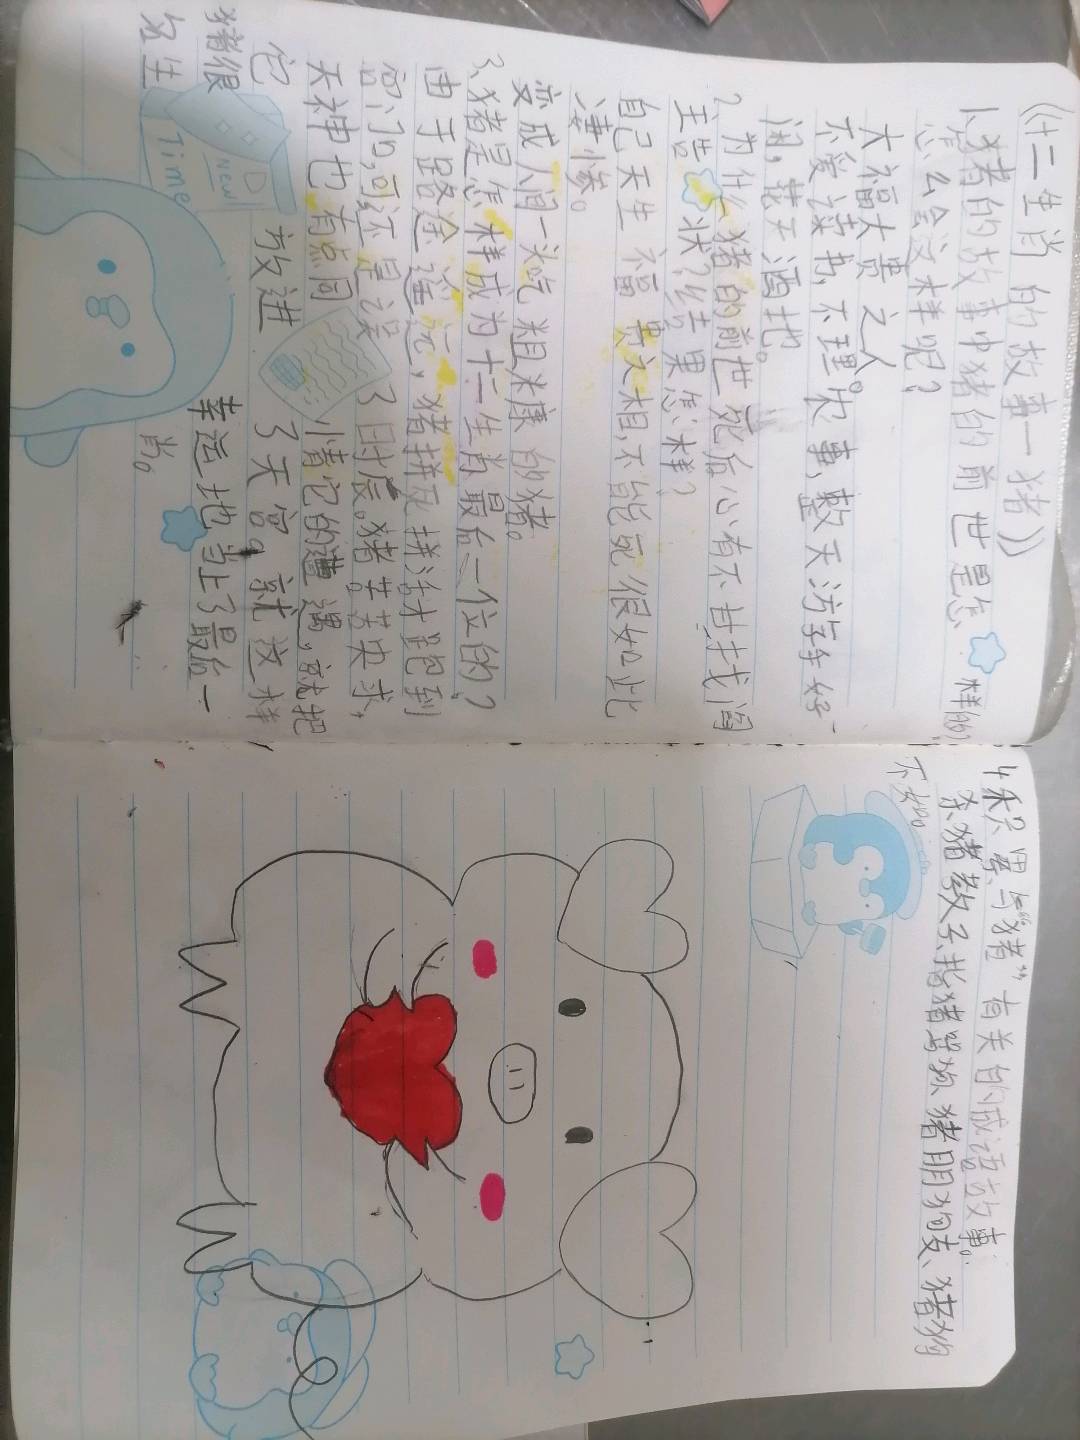 《十二生肖的故事一猪》
1、猪的故事中猪的前世是怎样的?
怎么会这样呢?
大福大贵之人
不爱读书,不理农事,整天游手好
闲,花天酒地。
2、为什么猪的前世死后心有不甘找阎
王告状?结果怎样?
自己天生福贵之相,不能死得如此
凄惨。
变成人间一头吃粗糠的猪。
3、猪是怎样成为十二生肖最后一位的?
由于路途遥远,猪拼死拼活才跑到
宫门,可还是误了时辰。猪苦苦央求,
天神也有点同小情它的遭遇,就把
它放进了天宫。就这样
猪很幸运地当上了最后一
名生肖。
NEW!
Time
4积累与“猪”有关的成语故事。
杀猪教子、指猪骂狗、猪朋狗友、猪狗
不如。